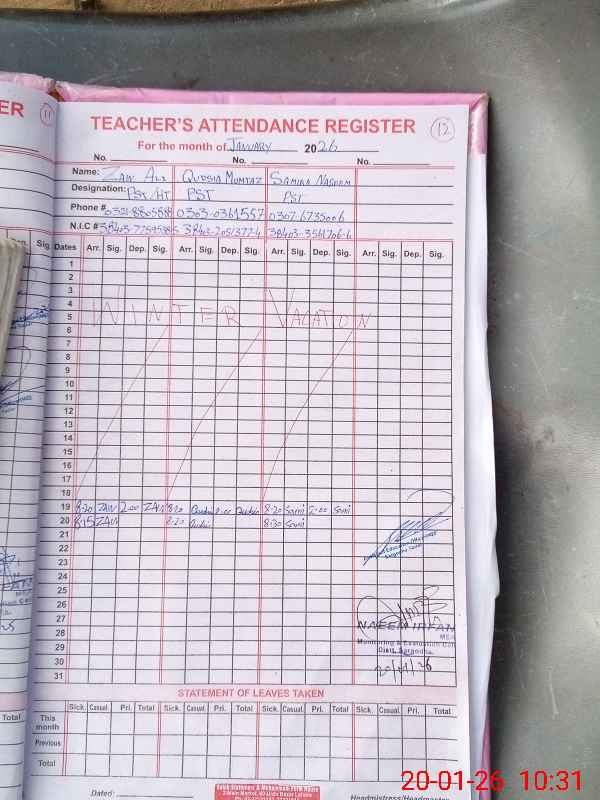 ER 11
TEACHER'S ATTENDANCE REGISTER 12
For the month of JANUARY 2026
No. No. No.
Name: ZAIN ALI QUDSIA MUMTAZ SAMIRA NASEEM
Designation: PST/HT PST PST
Phone # 0303-0361557 0307-6735006
N.I.C #
Sig. Dates Arr. Sig. Dep. Sig. Arr. Sig. Dep. Sig. Arr. Sig. Dep. Sig. Arr. Sig. Dep. Sig.
1
2
3
4
WINTER VACATION
5
6
7
8
9
10
11
12
13
14
15
16
17
18
19 8:20 ZAIN 2:00 ZAIN 8:20 2:00 8:20 Sami 2:00 Sami
20 8:15 ZAIN 8:20 8:30 Sami
21
22
23
24
25
26
27 NAEEM IRFAN
MEA
28 Monitoring & Evaluation
29 Distt. Sargodha
30 20/01/26
31
STATEMENT OF LEAVES TAKEN
Total Sick. Casual. Pri. Total Sick. Casual. Pri. Total Sick. Casual. Pri. Total Sick. Casual. Pri. Total
This month
Previous
Total
Dated:
Headmistress/Headmaster
20-01-26 10:31